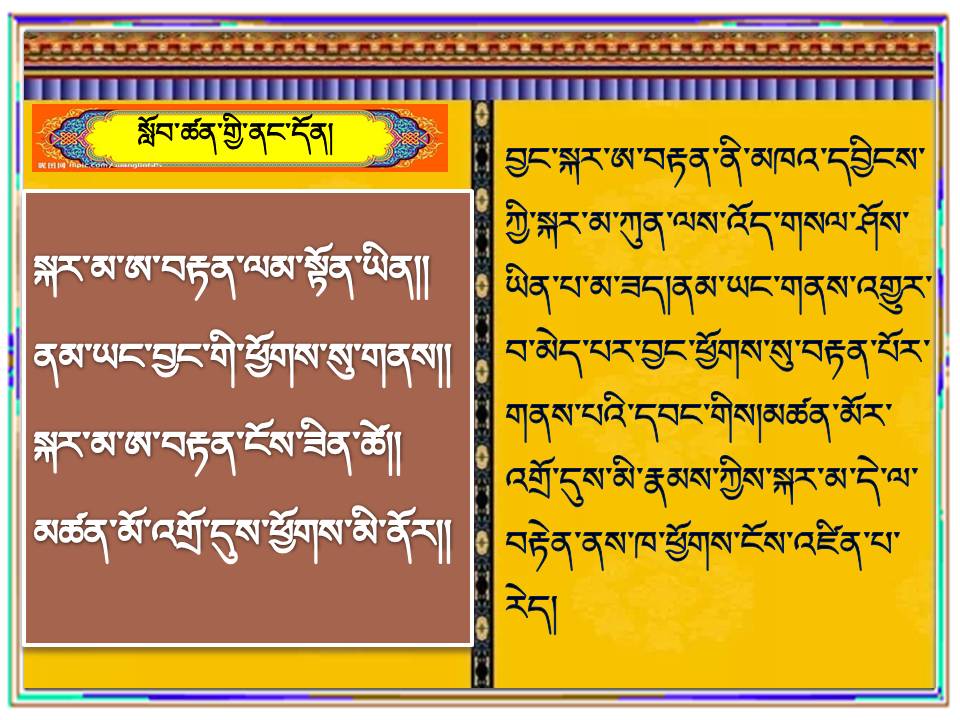 སློབ་ཚན་གྱི་ནང་དོན།
སྐར་མ་ཨ་བརྟན་ལམ་སྟོན་ཡིན།།
ནམ་ཡང་བྱང་གི་ཕྱོགས་སུ་གནས།།
སྐར་མ་ཨ་བརྟན་ངོས་ཟིན་ཚེ།།
མཚན་མོ་འགྲོ་དུས་ཕྱོགས་མི་ནོར།།
བྱང་སྐར་ཨ་བརྟན་ནི་མཁའ་དབྱིངས་
ཀྱི་སྐར་མ་ཀུན་ལས་འོད་གསལ་ཤོས་
ཡིན་པ་མ་ཟད།ནམ་ཡང་གནས་འགྱུར་
བ་མེད་པར་བྱང་ཕྱོགས་སུ་བརྟན་པོར་
གནས་པའི་དབང་གིས།མཚན་མོར་
འགྲོ་དུས་མི་རྣམས་ཀྱིས་སྐར་མ་དེ་ལ་
བརྟེན་ནས་ཁ་ཕྱོགས་ངོས་འཛིན་པ་
རེད།